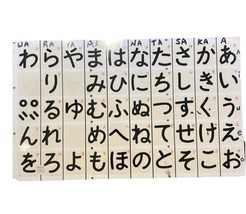 WA RA NA TA SA KA A
わ ら や ま は な た さ か あ
り み ひ に ち し き い
る ゆ む ふ ぬ つ す く う
ん れ め へ ね て せ け え
を ろ よ も ほ の と そ こ お。